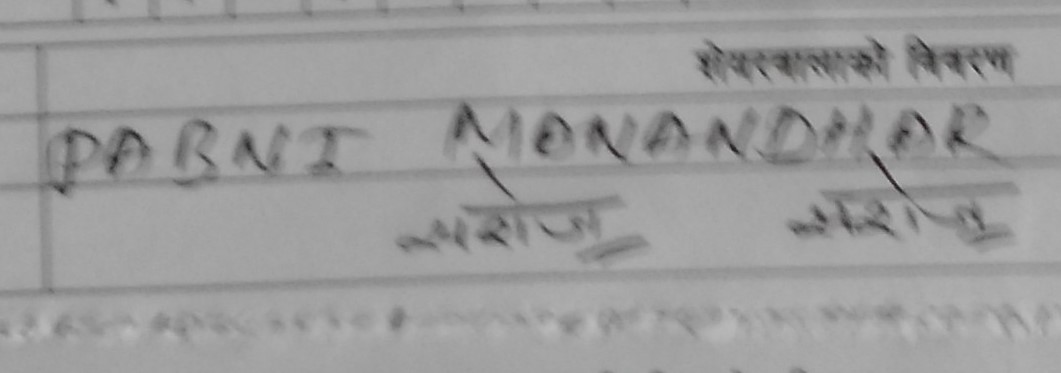 शेयरवालाको विवरण
PABNI MANANDHAR
सरोज सरोज